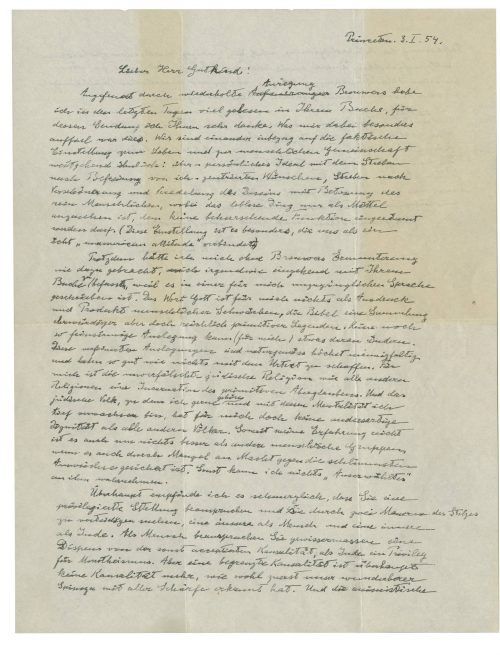 Princeton. 3. I. 54.
Lieber Herr Gutkind!
Angefeuert durch wiederholte Anregung Brouwers habe
ich in den letzten Tagen viel gelesen in Ihrem Buche, für
dessen Sendung ich Ihnen sehr danke. Was mir dabei besonders
auffiel war dies. Wir sind einander inbezug auf die faktische
Einstellung zum Leben und zur menschlichen Gemeinschaft
weitgehend ähnlich: über-persönliches Ideal mit dem Streben
nach Befreiung von ich-zentrierten Wünschen, Streben nach
Verschönerung und Veredelung des Daseins mit Betonung des
rein Menschlichen, wobei das leblose Ding nur als Mittel
anzusehen ist, dem keine beherrschende Funktion eingeräumt
werden darf. (Diese Einstellung ist es besonders, die uns als ein
echt "unamerican attitude" verbindet.)
Trotzdem hätte ich mich ohne Brouwers Ermunterung
nie dazu gebracht, mich irgendwie eingehend mit Ihrem
Buche zu befassen, weil es in einer für mich unzugänglichen Sprache
geschrieben ist. Das Wort Gott ist für mich nichts als Ausdruck
und Produkt menschlicher Schwächen, die Bibel eine Sammlung
ehrwürdiger aber doch reichlich primitiver Legenden. Keine noch
so feinsinnige Auslegung kann (für mich) etwas daran ändern.
Diese verfeinerten Auslegungen sind naturgemäss höchst mannigfaltig
und haben so gut wie nichts mit dem Urtext zu schaffen. Für
mich ist die unverfälschte jüdische Religion wie alle anderen
Religionen eine Incarnation des primitiven Aberglaubens. Und das
jüdische Volk, zu dem ich gerne gehöre und mit dessen Mentalität ich
tief verwachsen bin, hat für mich doch keine andersartige
Dignität als alle anderen Völker. Soweit meine Erfahrung reicht
ist es auch um nichts besser als andere menschliche Gruppen,
wenn es auch durch Mangel an Macht gegen die schlimmsten
Auswüchse gesichert ist. Sonst kann ich nichts "Auserwähltes"
an ihm wahrnehmen.
Überhaupt empfinde ich es schmerzlich, dass Sie eine
privilegierte Stellung beanspruchen und sie durch zwei Mauern des Stolzes
zu verteidigen suchen, eine äussere als Mensch und eine innere
als Jude. Als Mensch beanspruchen Sie gewissermassen einen
Dispens von der sonst accептierten Kausalität, als Jude ein Privileg
für Monotheismus. Aber eine begrenzte Kausalität ist überhaupt
keine Kausalität mehr, wie wohl zuerst unser wunderbarer
Spinoza mit aller Schärfe erkannt hat. Und die animistische